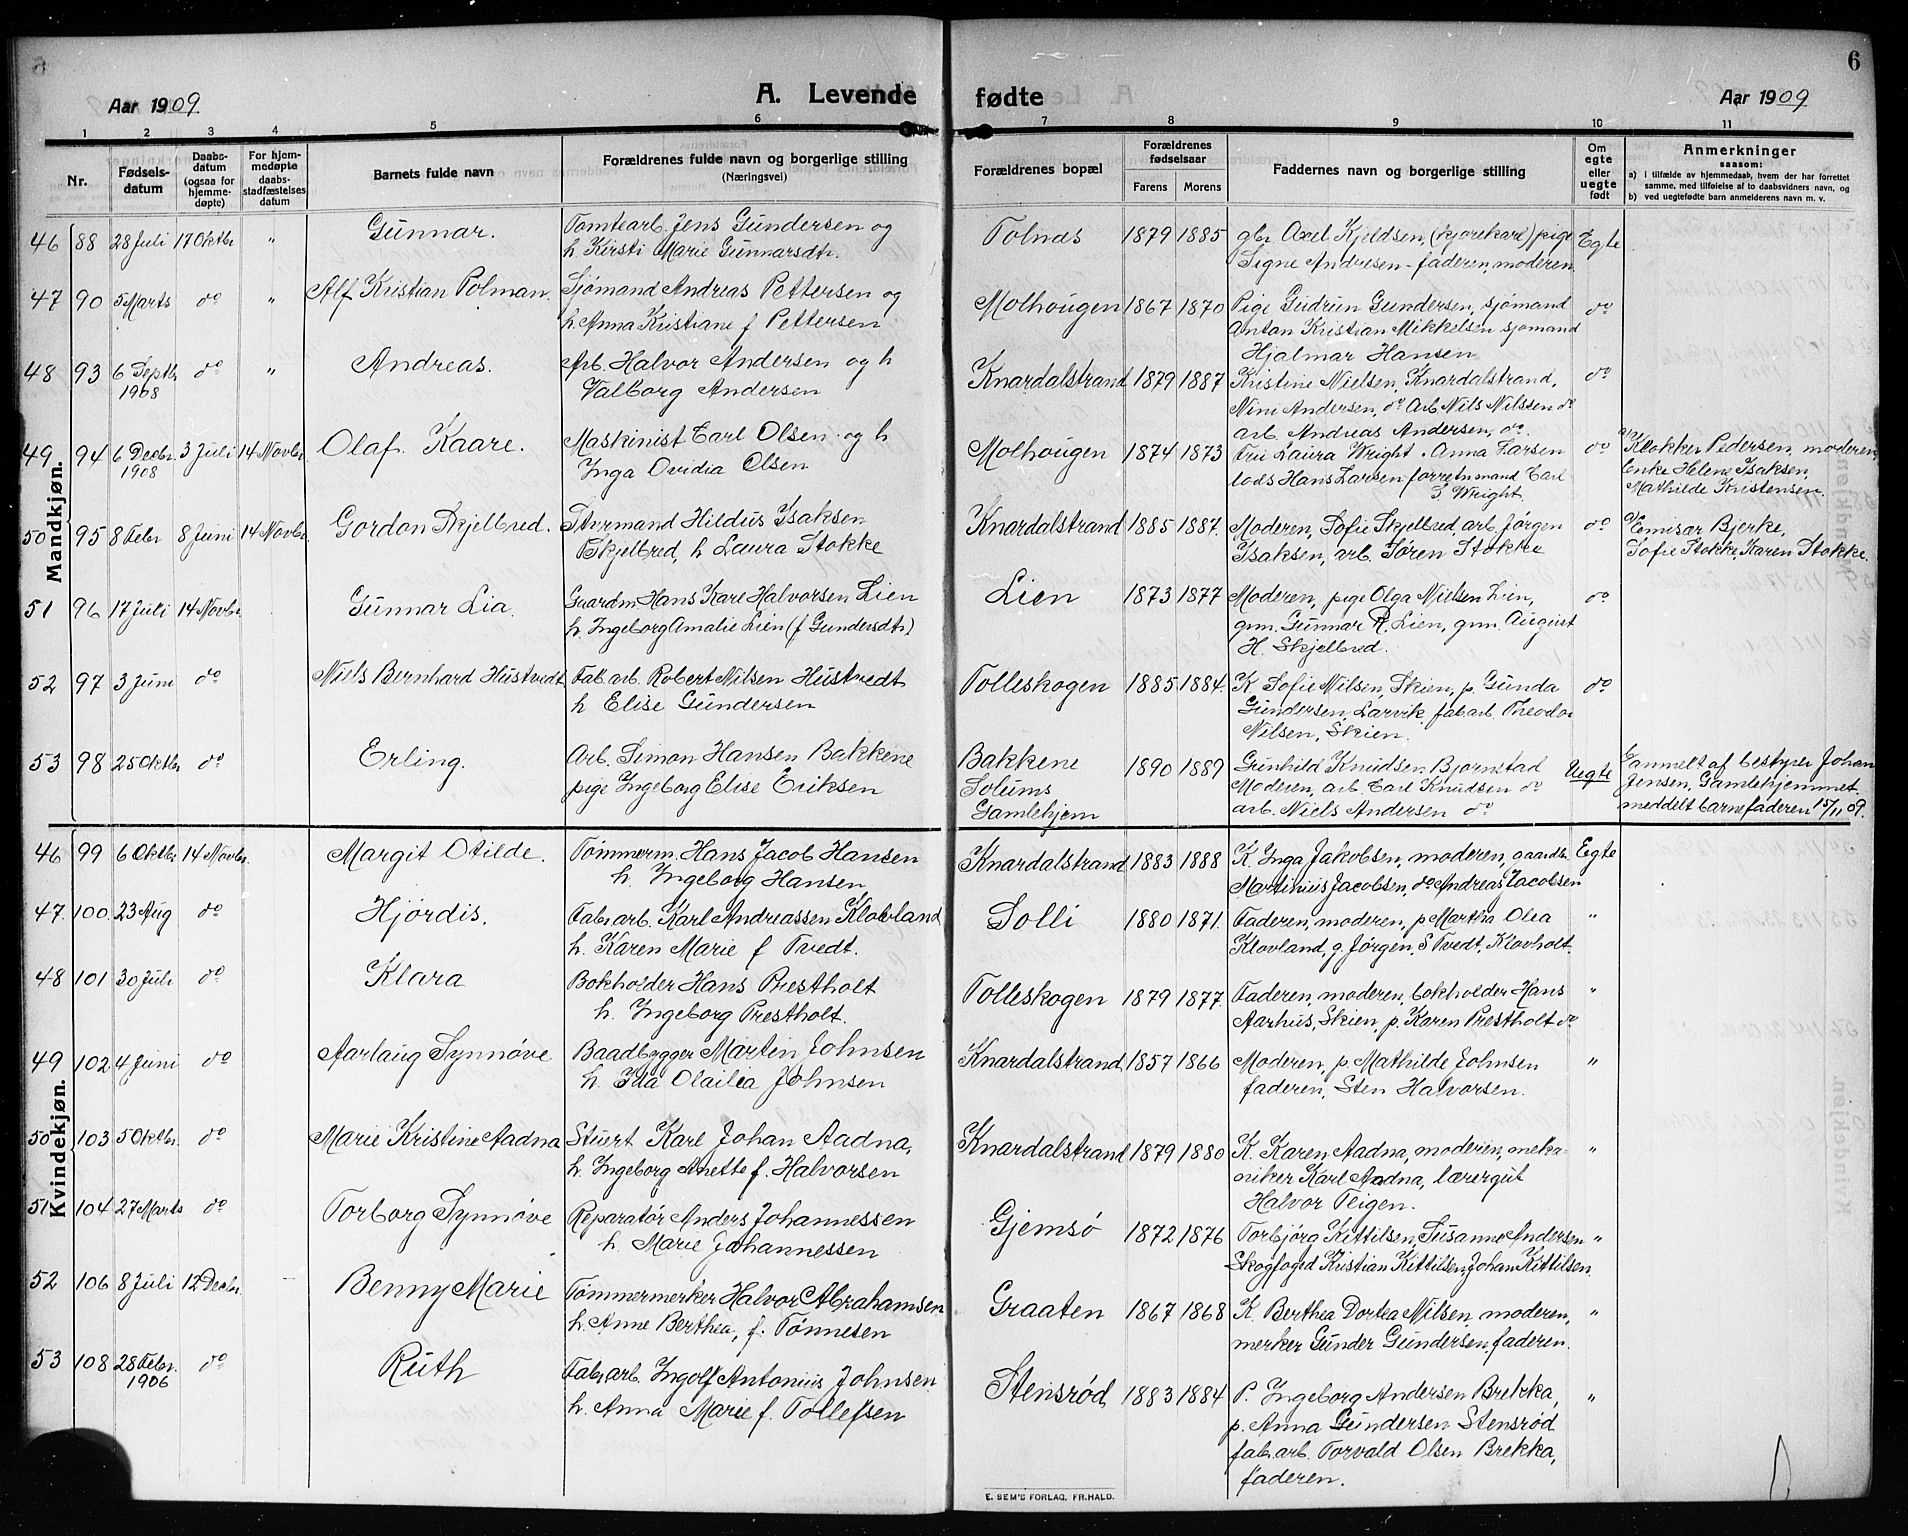 6
Aar 1909
A. Levende fødte
Aar 1909
1 2 3 4 5 6 7 8 9 10 11
Nr.
Fødsels-
datum
Daabs-
datum
(ogsaa for
hjemme-
døpte)
For hjem-
medøpte
daabs-
stadfæstelses
datum
Barnets fulde navn
Forældrenes fulde navn og borgerlige stilling
(Næringsvei)
Forældrenes bopæl
Forældrenes
fødselsaar
Farens Morens
Faddernes navn og borgerlige stilling
Om
egte
eller
uegte
født
Anmerkninger
saasom:
a) i tilfælde av hjemmedaab, hvem der har forrettet
samme, med tilføielse af to daabsvidners navn, og
b) ved uegtefødte barn anmelderens navn m. v.
Mandkjøn.
46 88 28 Juli 17 Oktbr " Gunnar. Tomtearb. Jens Gundersen og
h. Kirsti Marie Gunnarsdtr.
Tolnæs 1879 1885 gbr Axel Kjeldsen, (kjørekarl) pige Egte
Signe Andresen - faderen, moderen.
47 90 5 Marts do " Alf Kristian Polman. Sjømand Andreas Pettersen og
h. Anna Kristiane f Pettersen
Molhougen 1867 1870 Pige Gudrun Gundersen, sjømand do
Antan Kristian Mikkelsen sjømand
Hjalmar Hansen
48 93 6 Septbr do " Andreas. Arb. Halvor Andersen og h
1908 Valborg Andersen
Knardalstrand 1879 1887 Kristine Nielsen, Knardalstrand, do
Nini Andersen, do Arb. Nils Nilssen do
arb. Andreas Andersen, do.
49 94 6 Decbr 3 Juli 14 Novbr Olaf Kaare. Maskinist Carl Olsen og h
1908 Inga Ovidia Olsen
Molhougen 1874 1873 fru Laura Wright. Anna Larsen do
lods Hans Larsen forretn mand Carl
S Wright.
Klokker Pedersen, moderen,
enke Helene Isaksen,
Mathilde Kristensen.
50 95 8 Febr 8 Juni 14 Novbr. Gordon Skjelbred. Styrmand Hildus Isaksen
Skjelbred, h Laura Stokke
Knardalstrand 1885 1887. Moderen, Sofie Skjelbred, arb. Jørgen do
Isaksen, arb. Søren Stokke
Emisær Bjerke,
Sofie Stokke, Karen Stokke.
51 96 17 Juli 14 Novbr. Gunnar Lia. Gaardm Hans Karl Halvorsen Lien
h. Ingeborg Amalie Lien (f Gundersdtr)
Lien 1873 1877 Moderen, pige Olga Nielsen Lien, do
gm. Gunnar R. Lien, gm. August
H. Skjelbred.
52 97 3 Juni do Niels Bernhard Hustvedt Fab. arb. Robert Nilsen Hustvedt
h Elise Gundersen
Tolleskogen 1885 1884. K Sofie Nilsen, Skien, p. Gunda do
Gundersen, Larvik, fab.arb. Theodor
Nilsen, Skien.
53 98 25 Oktbr do Erling. Arb. Simon Hansen Bakkene
pige Ingeborg Elise Eriksen
Bakkene
Solums
Gamlehjem
1890 1889 Gunhild Knudsen Bjørnstad Uegte
Moderen, arb. Carl Knudsen do
arb. Niels Andersen do
Anmelt af bestyrer Johan
Jensen, Gamlehjemmet.
meddelt barnefaderen 15/11 09.
Kvindekjøn.
46 99 6 Oktbr. 14 Novbr. Margit Otilde. Tømmerm. Hans Jacob Hansen
h. Ingeborg Hansen
Knardalstrand 1883 1888 K. Inga Jakobsen, moderen, gaardbr. Egte
Martinius Jacobsen, do Andreas Jacobsen
47. 100. 23 Aug do Hjørdis. Fabr.arb. Karl Andreassen Klovland
h. Karen Marie f Tvedt.
Solli 1880 1871. Faderen, moderen, p. Martha Olea "
Klovland, g. Jørgen, S Tvedt, Klovholt.
48 101 30 Juli do Klara Bokholder Hans Prestholt
h. Ingeborg Prestholt.
Tolleskogen 1879 1877. Faderen, moderen, bokholder Hans "
Aarhus, Skien, p. Karen Prestholt do
49 102 4 Juni do Aarlaug Synnøve Baadbygger Martin Johnsen
h. Ida Olailia Johnsen
Knardalstrand 1857 1866 Moderen, p. Mathilde Johnsen "
faderen, Sten Halvorsen.
50 103 5 Oktbr. do Marie Kristine Aadna Stuert Karl Johan Aadna,
h. Ingeborg Anette f. Halvorsen
Knardalstrand 1879 1880 K. Karen Aadna, moderen, meka- "
niker Karl Aadna, lærergut
Halvor Teigen.
51 104 27 Marts do Torborg Synnøve Reparatør Anders Johannessen
h. Marie Johannessen
Gjemsø 1872 1876 Torbjørg Kittilsen, Susanne Andersen "
Skogfoged Kristian Kittilsen, Johan Kittilsen.
52 106 8 Juli 12 Decbr. Benny Marie Tømmermerker Halvor Abrahamsen
h. Anne Berthea, f. Tønnesen
Graaten 1867 1868 K. Berthea Dorthea Nilsen, moderen, "
merker Gunder Gundersen, faderen.
53 108 28 Febr. do Ruth Fabr.arb. Ingolf Antonius Johnsen
1906 h. Anna Marie f. Tollefsen
Stensrød 1883 1884 P. Ingeborg Andersen Brekka, "
p. Anna Gundersen Stensrød
fab.arb. Torvald Olsen Brekka,
faderen.
E. SEM'S FORLAG, FR.HALD.